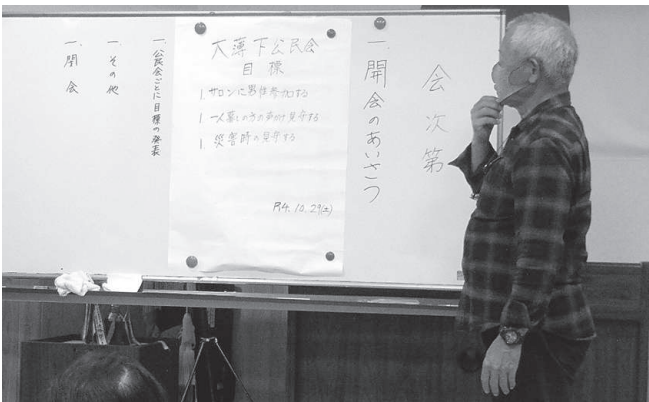 会次第
一、開会のあいさつ
大薄下公民会
目標
1. サロンに男性参加する
1. 一人暮しの方の声かけ見守りする
1. 災害時の見守する
R4.10.29(土)
一、公民会ごとに目標の発表
一、その他
一、閉会